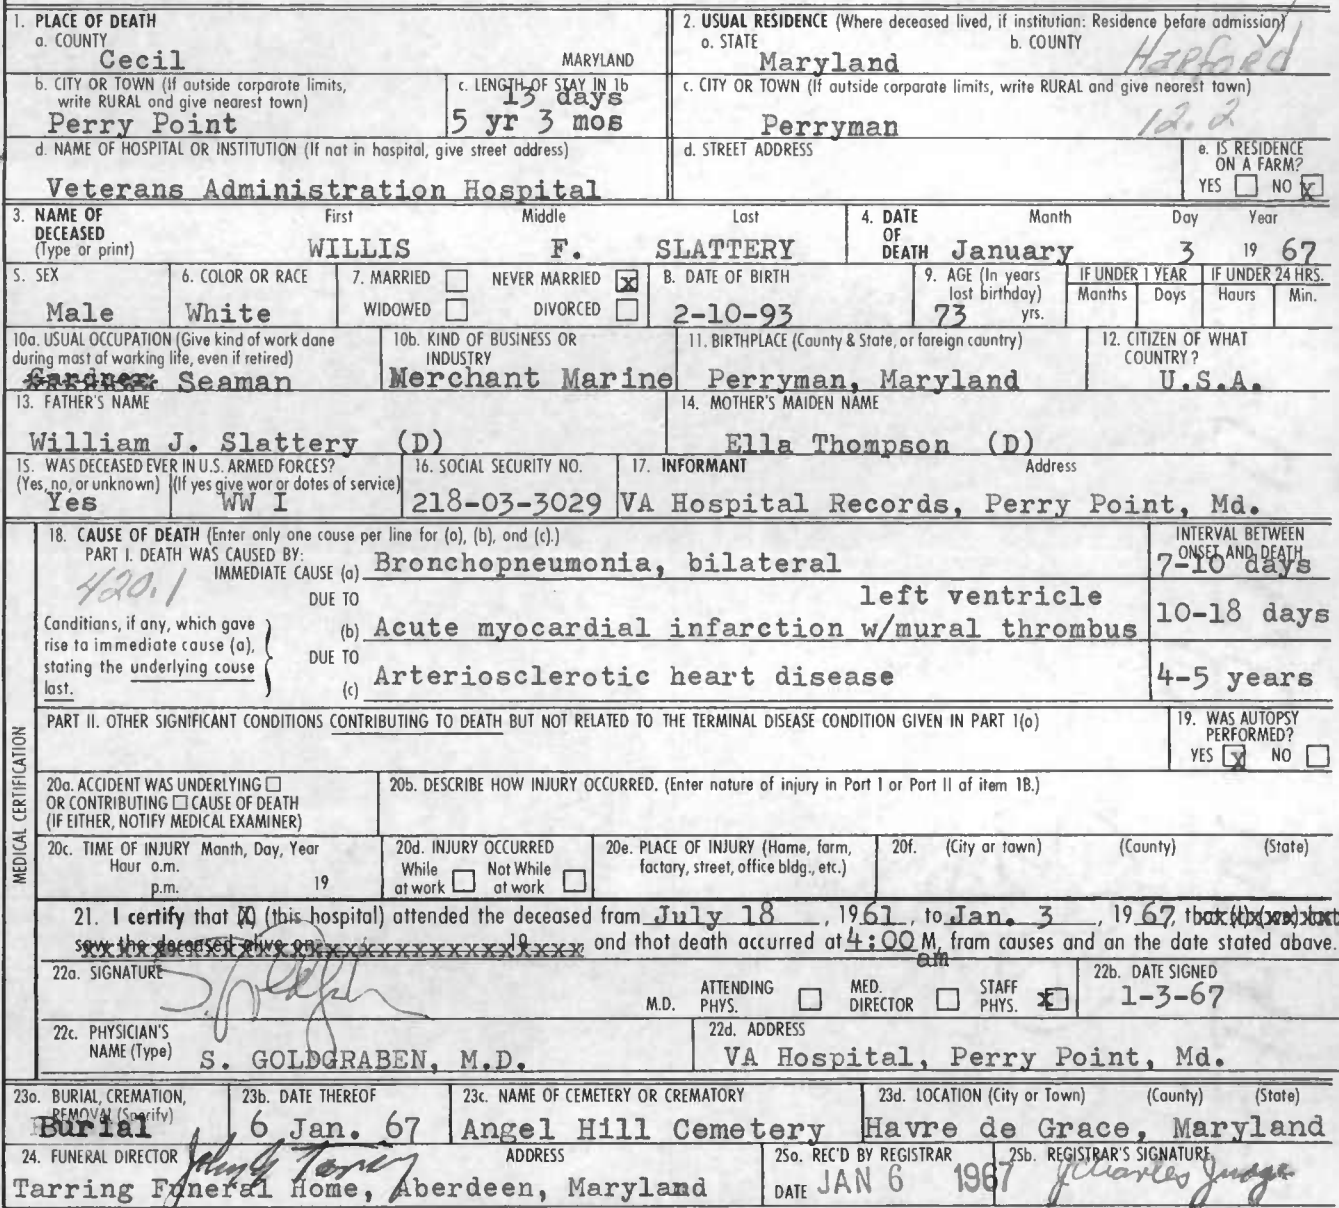 1. PLACE OF DEATH
a. COUNTY
Cecil MARYLAND
2. USUAL RESIDENCE (Where deceased lived, if institution: Residence before admission)
a. STATE b. COUNTY
Maryland Harford
b. CITY OR TOWN (If outside corporate limits, write RURAL and give nearest town)
Perry Point
c. LENGTH OF STAY IN 1b
13 days
5 yr 3 mos
c. CITY OR TOWN (If outside corporate limits, write RURAL and give nearest town)
Perryman 12.2
d. NAME OF HOSPITAL OR INSTITUTION (If not in hospital, give street address)
Veterans Administration Hospital
d. STREET ADDRESS
e. IS RESIDENCE ON A FARM?
YES NO X
3. NAME OF DECEASED (Type or print)
First Middle Last
WILLIS F. SLATTERY
4. DATE OF DEATH
Month Day Year
January 3 19 67
5. SEX
Male
6. COLOR OR RACE
White
7. MARRIED NEVER MARRIED X
WIDOWED DIVORCED
8. DATE OF BIRTH
2-10-93
9. AGE (In years last birthday)
73 yrs.
IF UNDER 1 YEAR
Months Days
IF UNDER 24 HRS.
Hours Min.
10a. USUAL OCCUPATION (Give kind of work done during most of working life, even if retired)
Gardner Seaman
10b. KIND OF BUSINESS OR INDUSTRY
Merchant Marine
11. BIRTHPLACE (County & State, or foreign country)
Perryman, Maryland
12. CITIZEN OF WHAT COUNTRY?
U.S.A.
13. FATHER'S NAME
William J. Slattery (D)
14. MOTHER'S MAIDEN NAME
Ella Thompson (D)
15. WAS DECEASED EVER IN U.S. ARMED FORCES?
(Yes, no, or unknown) (If yes give war or dates of service)
Yes WW I
16. SOCIAL SECURITY NO.
218-03-3029
17. INFORMANT Address
VA Hospital Records, Perry Point, Md.
MEDICAL CERTIFICATION
18. CAUSE OF DEATH (Enter only one cause per line for (a), (b), and (c).)
INTERVAL BETWEEN ONSET AND DEATH
PART I. DEATH WAS CAUSED BY:
IMMEDIATE CAUSE (a) Bronchopneumonia, bilateral 7-10 days
420.1
DUE TO left ventricle
(b) Acute myocardial infarction w/mural thrombus 10-18 days
Conditions, if any, which gave rise to immediate cause (a), stating the underlying cause last.
DUE TO
(c) Arteriosclerotic heart disease 4-5 years
PART II. OTHER SIGNIFICANT CONDITIONS CONTRIBUTING TO DEATH BUT NOT RELATED TO THE TERMINAL DISEASE CONDITION GIVEN IN PART I(a)
19. WAS AUTOPSY PERFORMED?
YES X NO
20a. ACCIDENT WAS UNDERLYING
OR CONTRIBUTING CAUSE OF DEATH
(IF EITHER, NOTIFY MEDICAL EXAMINER)
20b. DESCRIBE HOW INJURY OCCURRED. (Enter nature of injury in Part I or Part II of item 18.)
20c. TIME OF INJURY Month, Day, Year
Hour a.m.
p.m. 19
20d. INJURY OCCURRED
While at work Not While at work
20e. PLACE OF INJURY (Home, farm, factory, street, office bldg., etc.)
20f. (City or town) (County) (State)
21. I certify that (X) (this hospital) attended the deceased from July 18, 1961, to Jan. 3, 1967, that (I) (we) last
saw the deceased alive on 19 and that death occurred at 4:00 M, from causes and on the date stated above.
am
22a. SIGNATURE
M.D. ATTENDING PHYS. MED. DIRECTOR STAFF PHYS. X
22b. DATE SIGNED
1-3-67
22c. PHYSICIAN'S NAME (Type)
S. GOLDGRABEN, M.D.
22d. ADDRESS
VA Hospital, Perry Point, Md.
23a. BURIAL, CREMATION, REMOVAL (Specify)
Burial
23b. DATE THEREOF
6 Jan. 67
23c. NAME OF CEMETERY OR CREMATORY
Angel Hill Cemetery
23d. LOCATION (City or Town) (County) (State)
Havre de Grace, Maryland
24. FUNERAL DIRECTOR ADDRESS
Tarring Funeral Home, Aberdeen, Maryland
25a. REC'D BY REGISTRAR
DATE JAN 6 1967
25b. REGISTRAR'S SIGNATURE
J Charles Judge